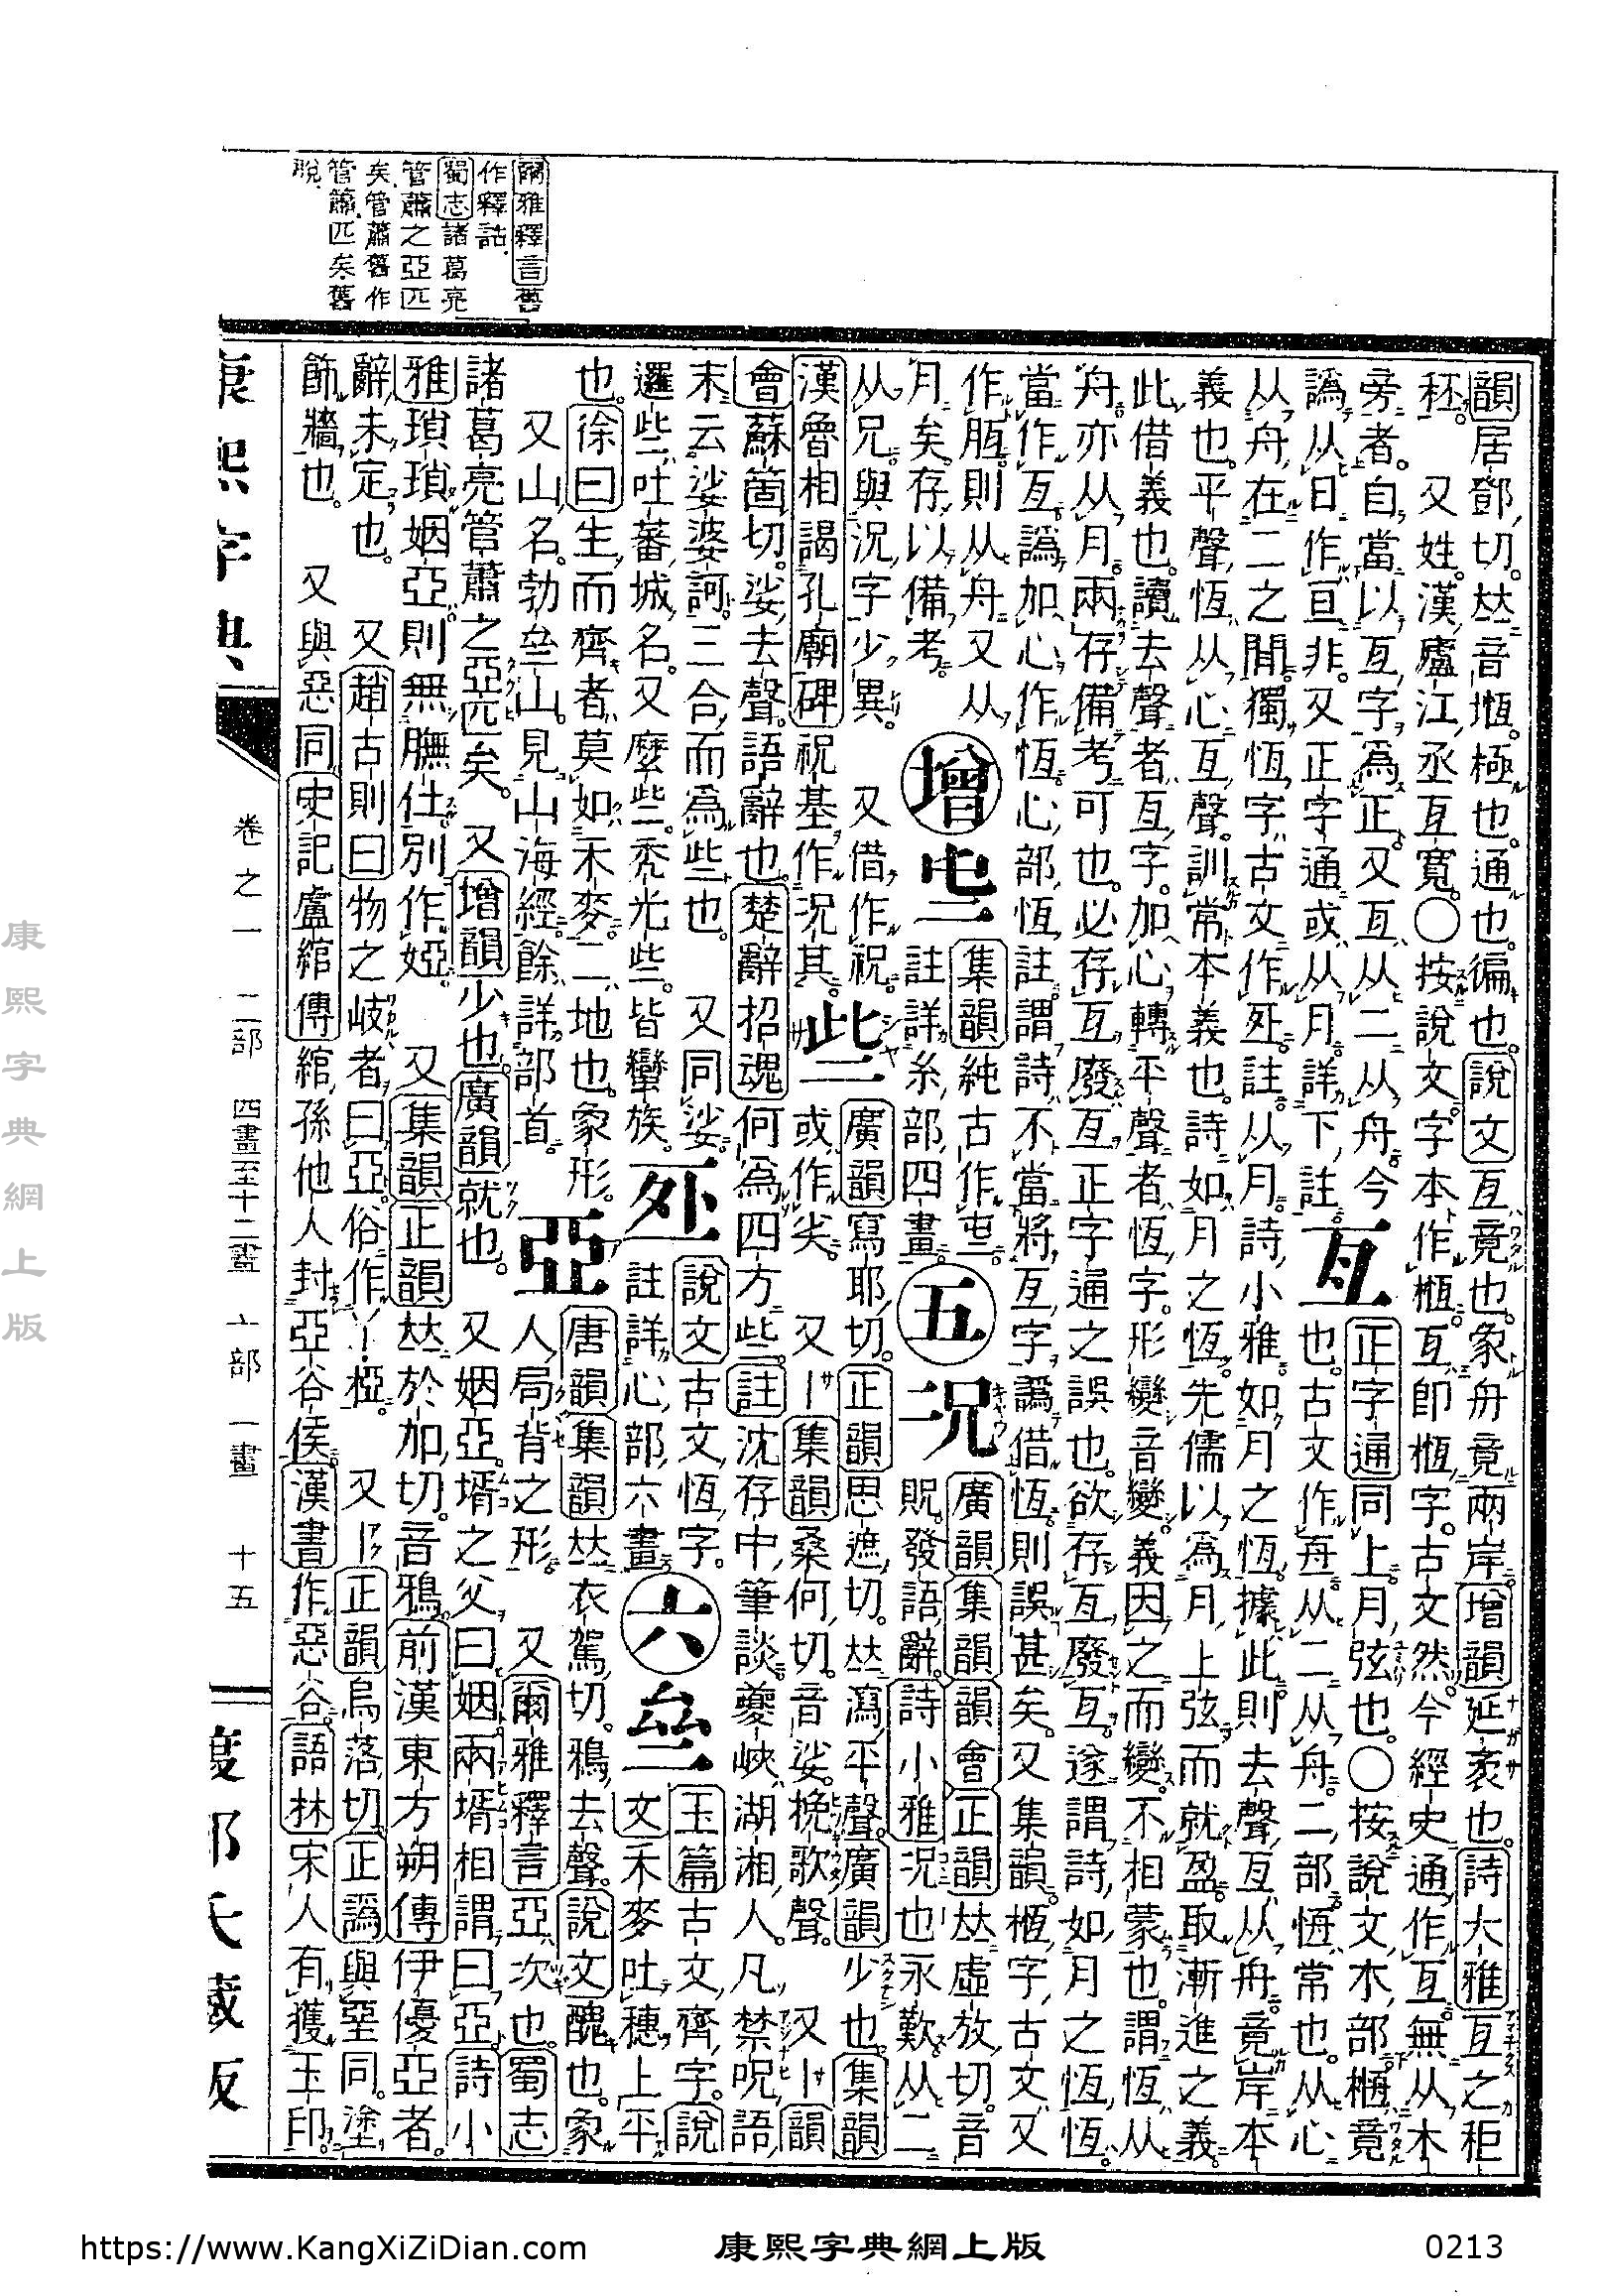 爾雅釋言舊
作釋詁
蜀志諸葛亮
管蕭之亞匹
矣管蕭舊作
管簫匹矣舊
脫
韻居鄧切𠀤音堩極也通也徧也說文亙竟也象舟竟兩岸增韻延袤也詩大雅亙之秬
秠 又姓漢廬江丞亙寬○按說文字本作㮓亙卽㮓字古文然今經史通作亙無从木
旁者自當以亙字爲正又亙从二从舟今
譌从日作亘非又正字通或从月詳下註
亙
正字通同上月弦也○按說文木部㮓竟
也古文作𠄨从二从舟二部恆常也从心
从舟在二之閒獨恆字古文作𠄨註从月詩小雅如月之恆據此則去聲亙从舟竟岸本
義也平聲恆从心亙聲訓常本義也詩如月之恆先儒以爲月上弦而就盈取漸進之義
此借義也讀去聲者亙字加心轉平聲者恆字形變音變義因之而變不相蒙也謂恆从
舟亦从月兩存備考可也必存亙廢亙正字通之誤也欲存亙廢亙遂謂詩如月之恆
當作亙譌加心作恆心部恆註謂詩不當將亙字譌借恆則誤甚矣又集韻㮓字古文又
作𣍖則从舟又从
月矣存以備考
增
集韻純古作
註詳糸部四畫
五
况
廣韻集韻韻會正韻𠀤虛放切音
貺發語辭詩小雅况也永歎从二
从兄與况字少異 又借作祝
漢魯相謁孔廟碑祝基作况其
些
廣韻寫耶切正韻思遮切𠀤瀉平聲廣韻少也集韻
或作尖 又｜集韻桑何切音娑挽歌聲 又｜韻
會蘇箇切娑去聲語辭也楚辭招魂何爲四方些註沈存中筆談夔峽湖湘人凡禁呪語
末云娑婆訶三合而爲些也 又同娑
邏些吐蕃城名又麼些禿光些皆蠻族
𠄨
說文古文恆字
註詳心部六畫
六
亝
玉篇古文齊字說
文禾麥吐穗上平
也徐曰生而齊者莫如禾麥二地也象形
又山名勃亝山見山海經餘詳部首
亞
唐韻集韻𠀤衣駕切鴉去聲說文醜也象
人局背之形 又爾雅釋言亞次也蜀志
諸葛亮管蕭之亞匹矣 又增韻少也廣韻就也 又姻亞壻之父曰姻兩壻相謂曰亞詩小
雅瑣瑣姻亞則無膴仕別作婭 又集韻正韻𠀤於加切音鴉前漢東方朔傳伊優亞者
辭未定也 又趙古則曰物之岐者曰亞俗作丫椏 又｜正韻烏落切正譌與堊同塗
飾牆也 又與惡同史記盧綰傳綰孫他人封亞谷侯漢書作惡谷語林宋人有獲玉印
康熙字典 卷之一 二部 四畫至十二畫 亠部 一畫 十五 渡部氏藏版
康熙字典網上版
https://www.KangXiZiDian.com 康熙字典網上版 0213